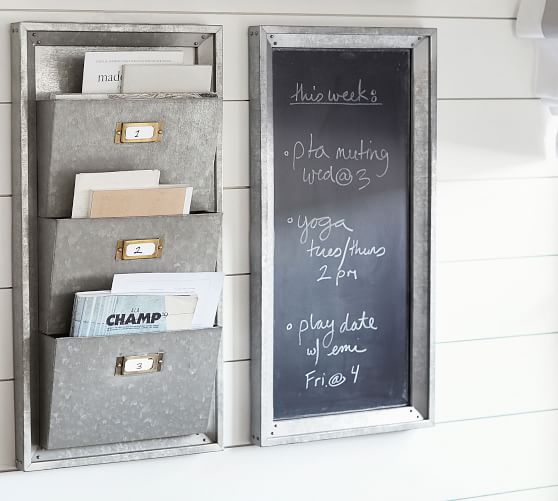 mad
1
2
À LA
CHAMP
3
this week:
• pta meeting
wed @ 3
• yoga
tues/thurs
2 pm
• play date
w/ emi
Fri. @ 4